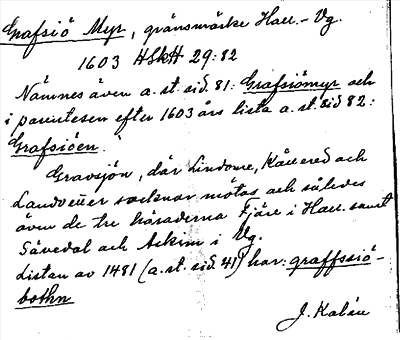 Grafsiö Myr, gränsmärke Hall.-Vg.
1603 HSkH 29:82
Nämnes även a. st. sid. 81: Grafsiömyr och
i parentesen efter 1603 års lista a. st. sid 82:
Grafsiöen.
Gravsjön, där Lindome, Kållered och
Landvetter socknar mötas och således
även de tre häraderna Fjäre i Hall. samt
Sävedal och Askim i Vg.
Listan av 1481 (a. st. sid. 41) har: graffssiö-
bothn
J. Kalén